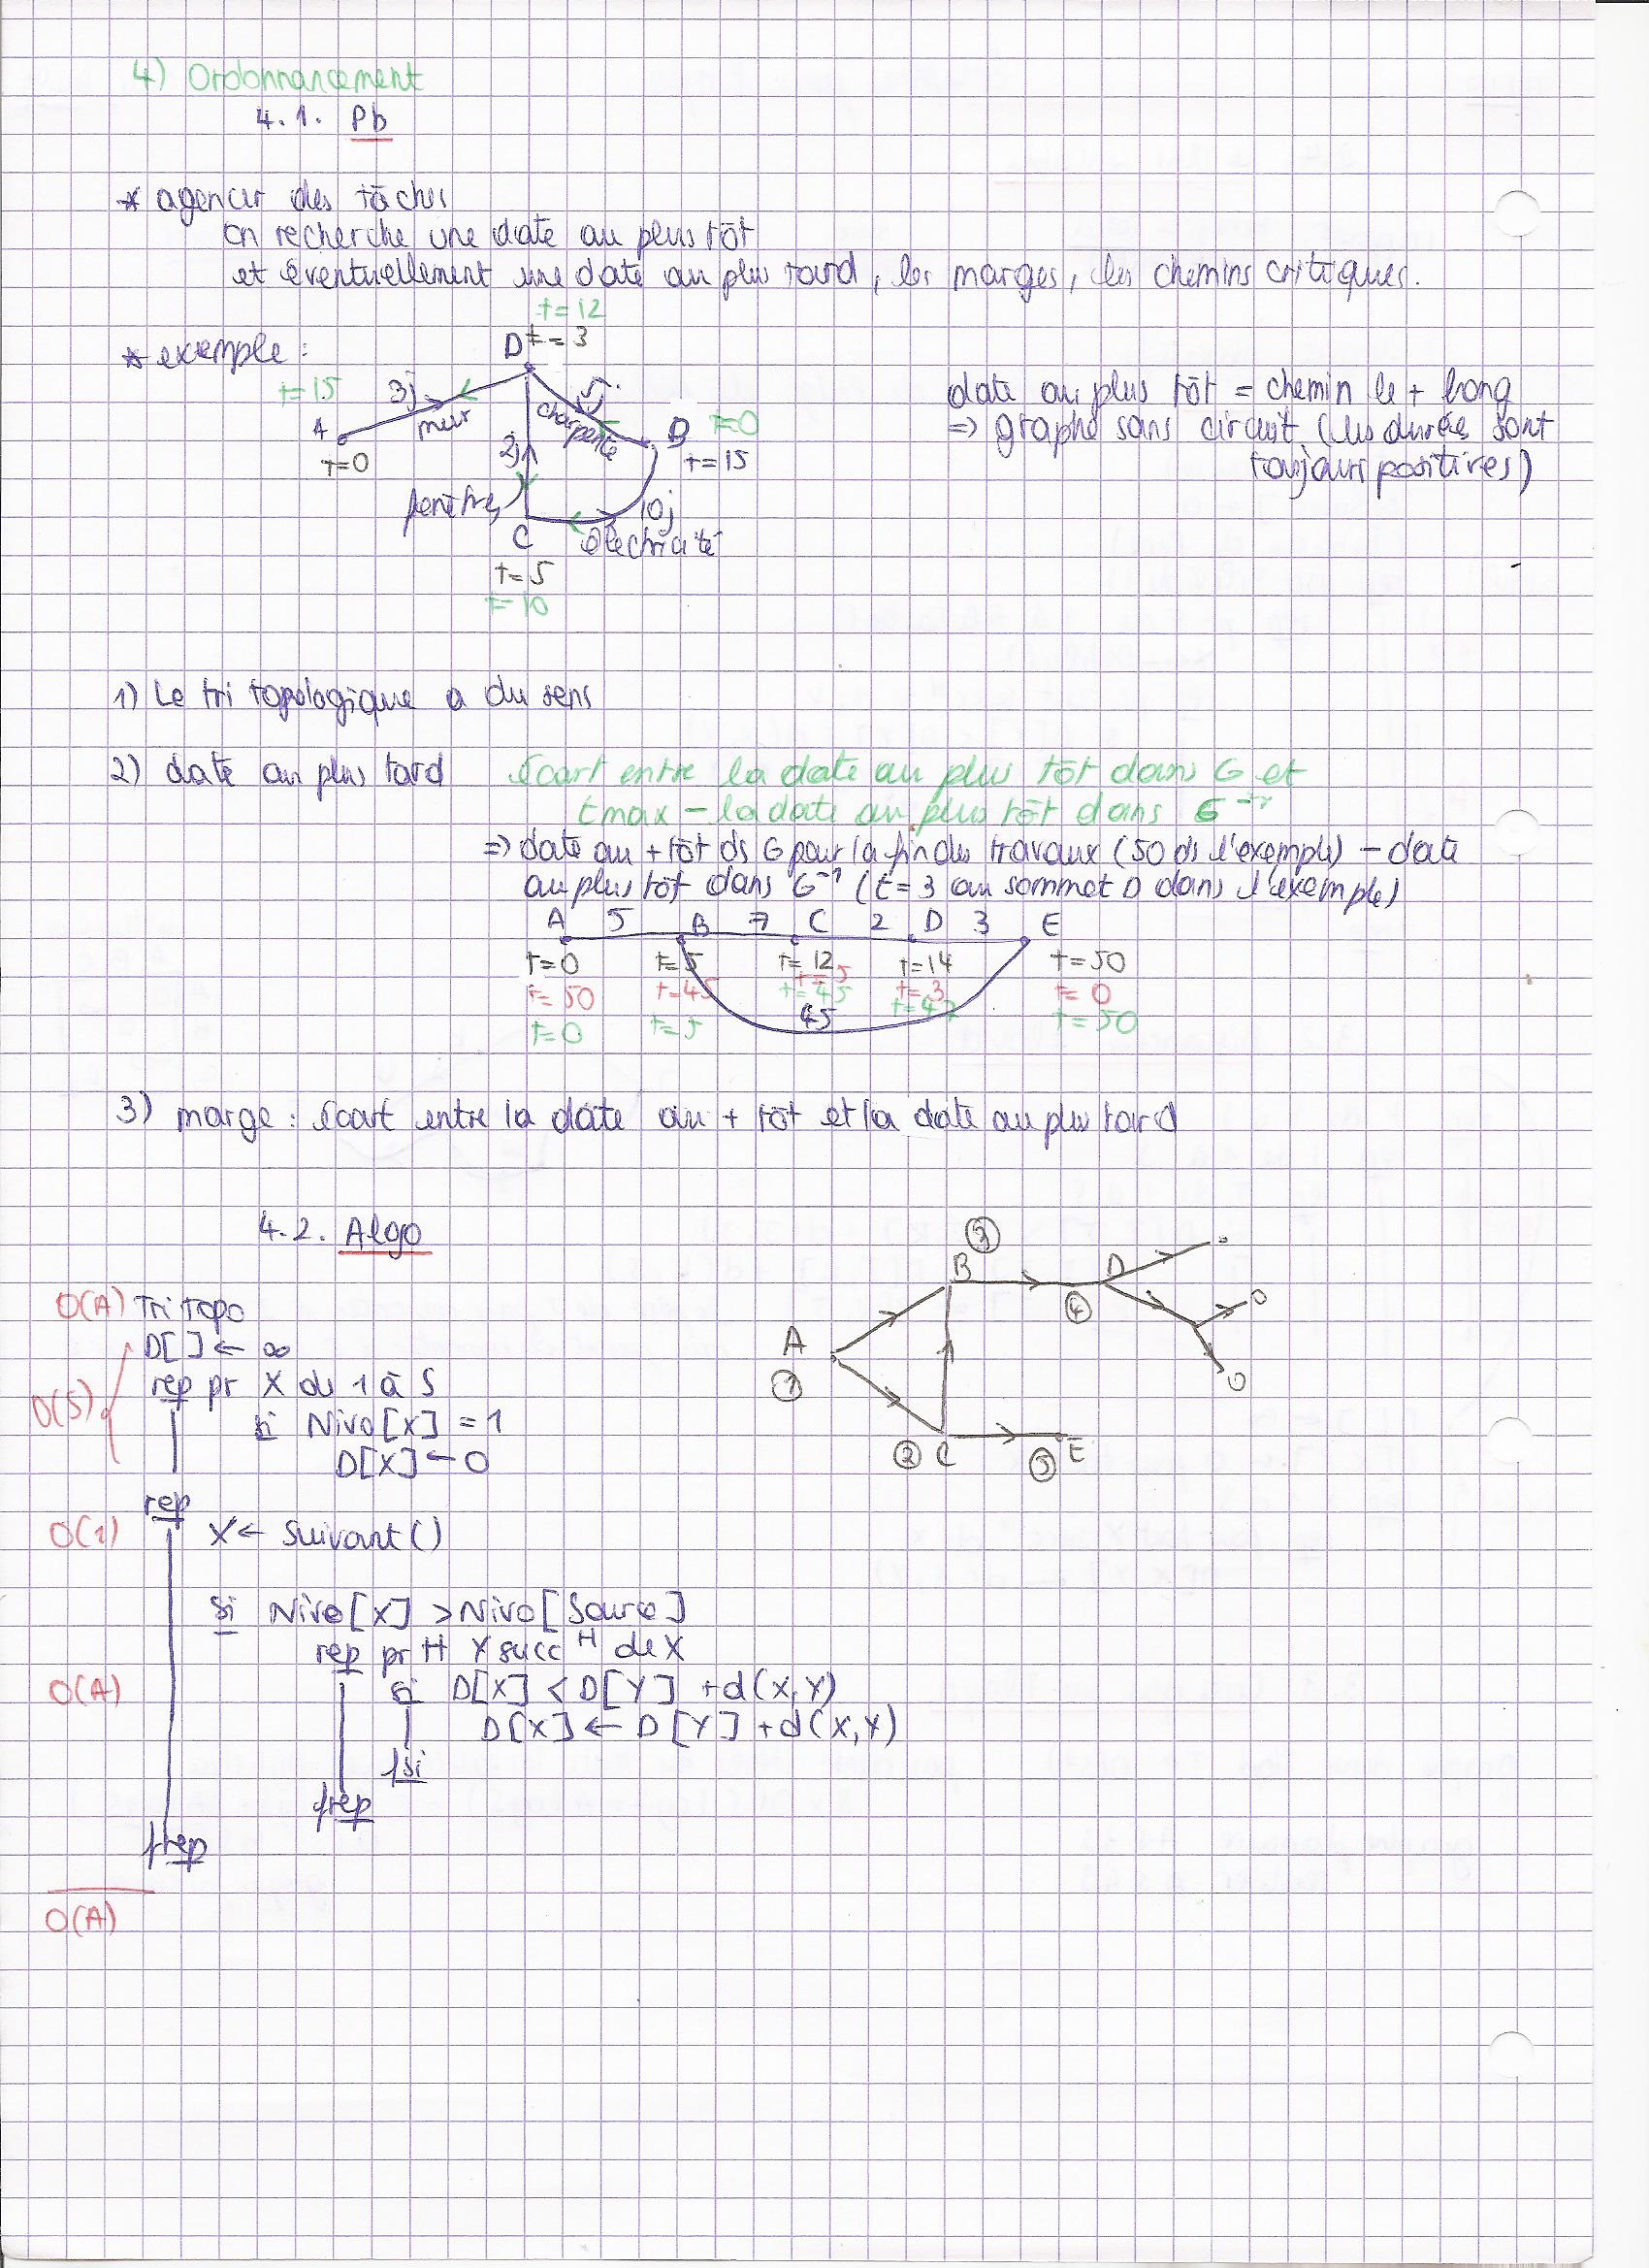 4) Ordonnancement
4.1. Pb
* agencer des tâches
on recherche une date au plus tôt
et éventuellement une date au plus tard, les marges, les chemins critiques.
* exemple :
t=12
D t=3
t=15
3j
mur
A
t=0
5j
charpente
B
t=0
t=15
2j
fenêtres
C
10j
électricité
t=5
t=10
date au plus tôt = chemin le + long
=> graphe sans circuit (les durées sont
toujours positives)
1) Le tri topologique a du sens
2) date au plus tard écart entre la date au plus tôt dans G et
tmax - la date au plus tôt dans G⁻¹
=> date au + tôt ds G pour la fin des travaux (50 ds l'exemple) - date
au plus tôt dans G⁻¹ (t=3 au sommet D dans l'exemple)
A 5 B 7 C 2 D 3 E
t=0 t=5 t=12 t=14 t=50
t=50 t=45 t=5 t=3 t=0
t=0 t=5 t=45 t=47 t=50
45
3) marge : écart entre la date au + tôt et la date au plus tard
4.2. Algo
O(A) Tri topo
D[] ← ∞
O(S) rep pr X de 1 à S
si Nivo[X] = 1
D[X] ← 0
rep
O(1) X ← Suivant()
si Nivo[X] > Nivo[Source]
rep pr H Y succ H de X
O(A) si D[X] < D[Y] + d(X,Y)
D[X] ← D[Y] + d(X,Y)
fsi
frep
frep
O(A)
A
1
B
3
D
4
2 C
5 E